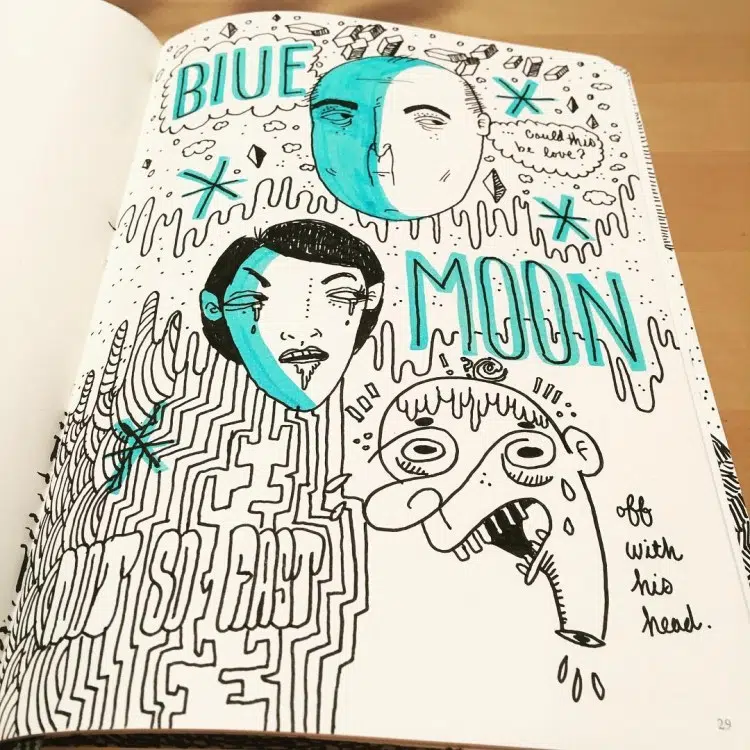 BlUE
could this
be love?
MOON
SO FAST
off
with
his
head.
29